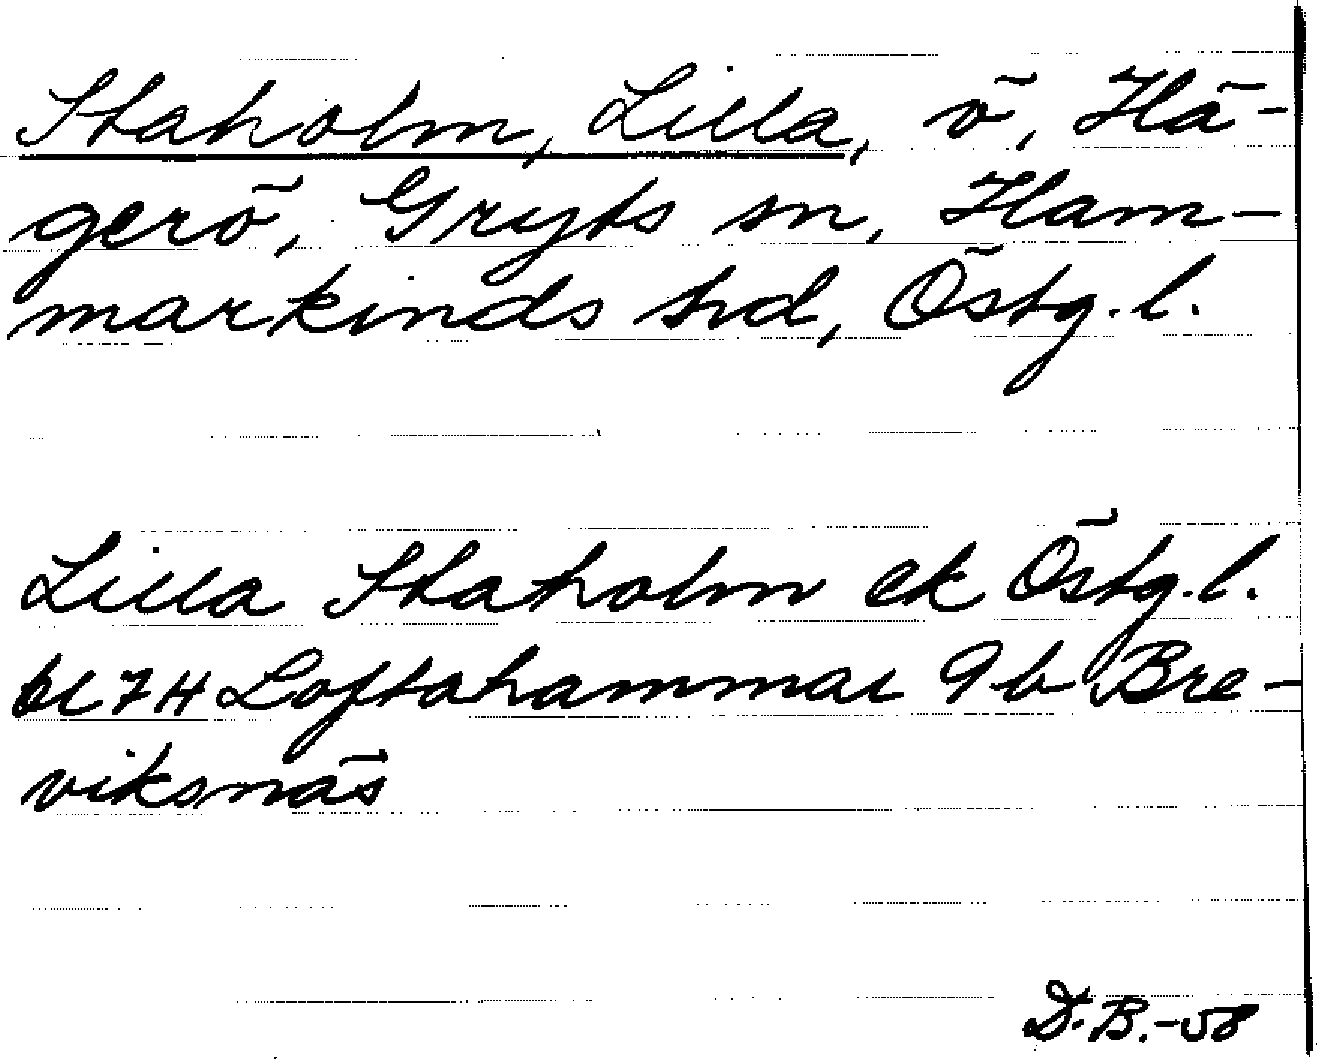 Staholm, Lilla, ö, Hä-
gerö, Gryts sn, Ham-
markinds hd, Östg.l.
Lilla Staholm ek Östg.l.
bl 74 Loftahammar 9b Bre-
viksnäs
D.B.-58